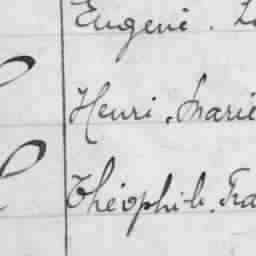 Eugène.
Henri. Marie
Théophile. Fra